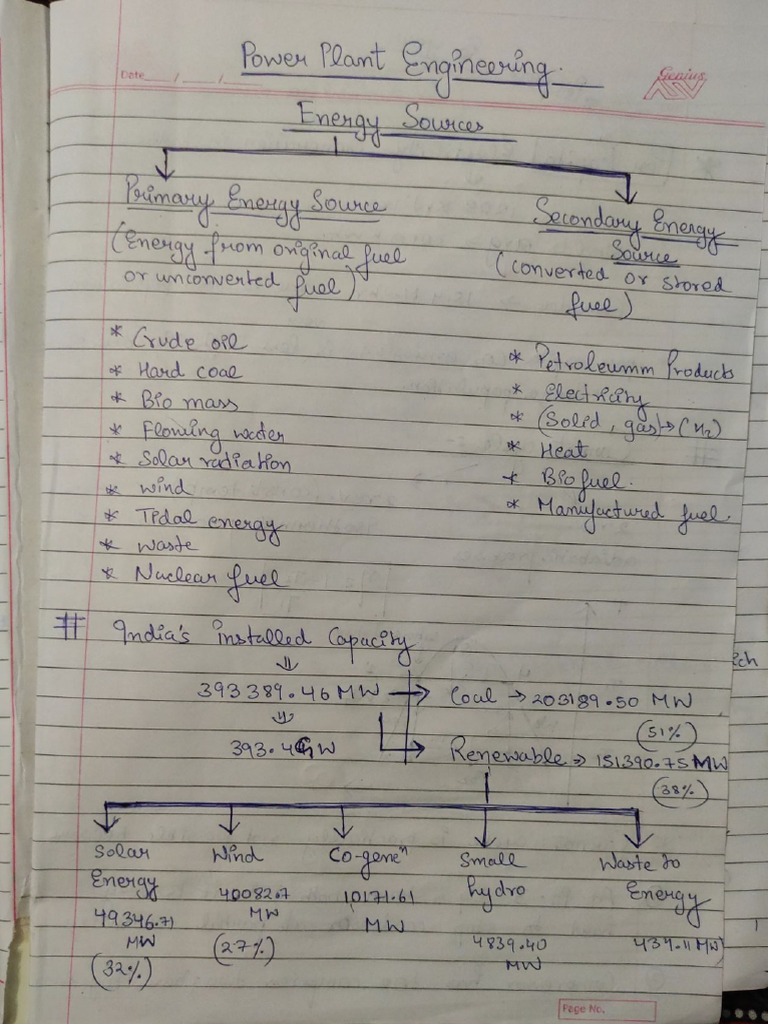 Power Plant Engineering.
Date ___/___/___
Genius
Energy Sources
Primary Energy Source
(Energy from original fuel
or unconverted fuel)
* Crude oil
* Hard coal
* Bio mass
* Flowing water
* Solar radiation
* Wind
* Tidal energy
* Waste
* Nuclear fuel
Secondary Energy
Source
(converted or stored
fuel)
* Petroleumm Products
* Electricity
* (Solid, gas) → (H₂)
* Heat
* Bio fuel.
* Manufactured fuel
# India's installed Capacity
⇓
393389.46 MW → Coal → 203189.50 MW
(51%)
⇓
393.4 GW
Renewable ⇒ 151390.75 MW
(38%)
Solar
Energy
49346.71
MW
(32%)
Wind
40082.7
MW
(27%)
Co-geneⁿ
10171.61
MW
Small
hydro
4839.40
MW
Waste to
Energy
434.11 MW
ch
Page No.